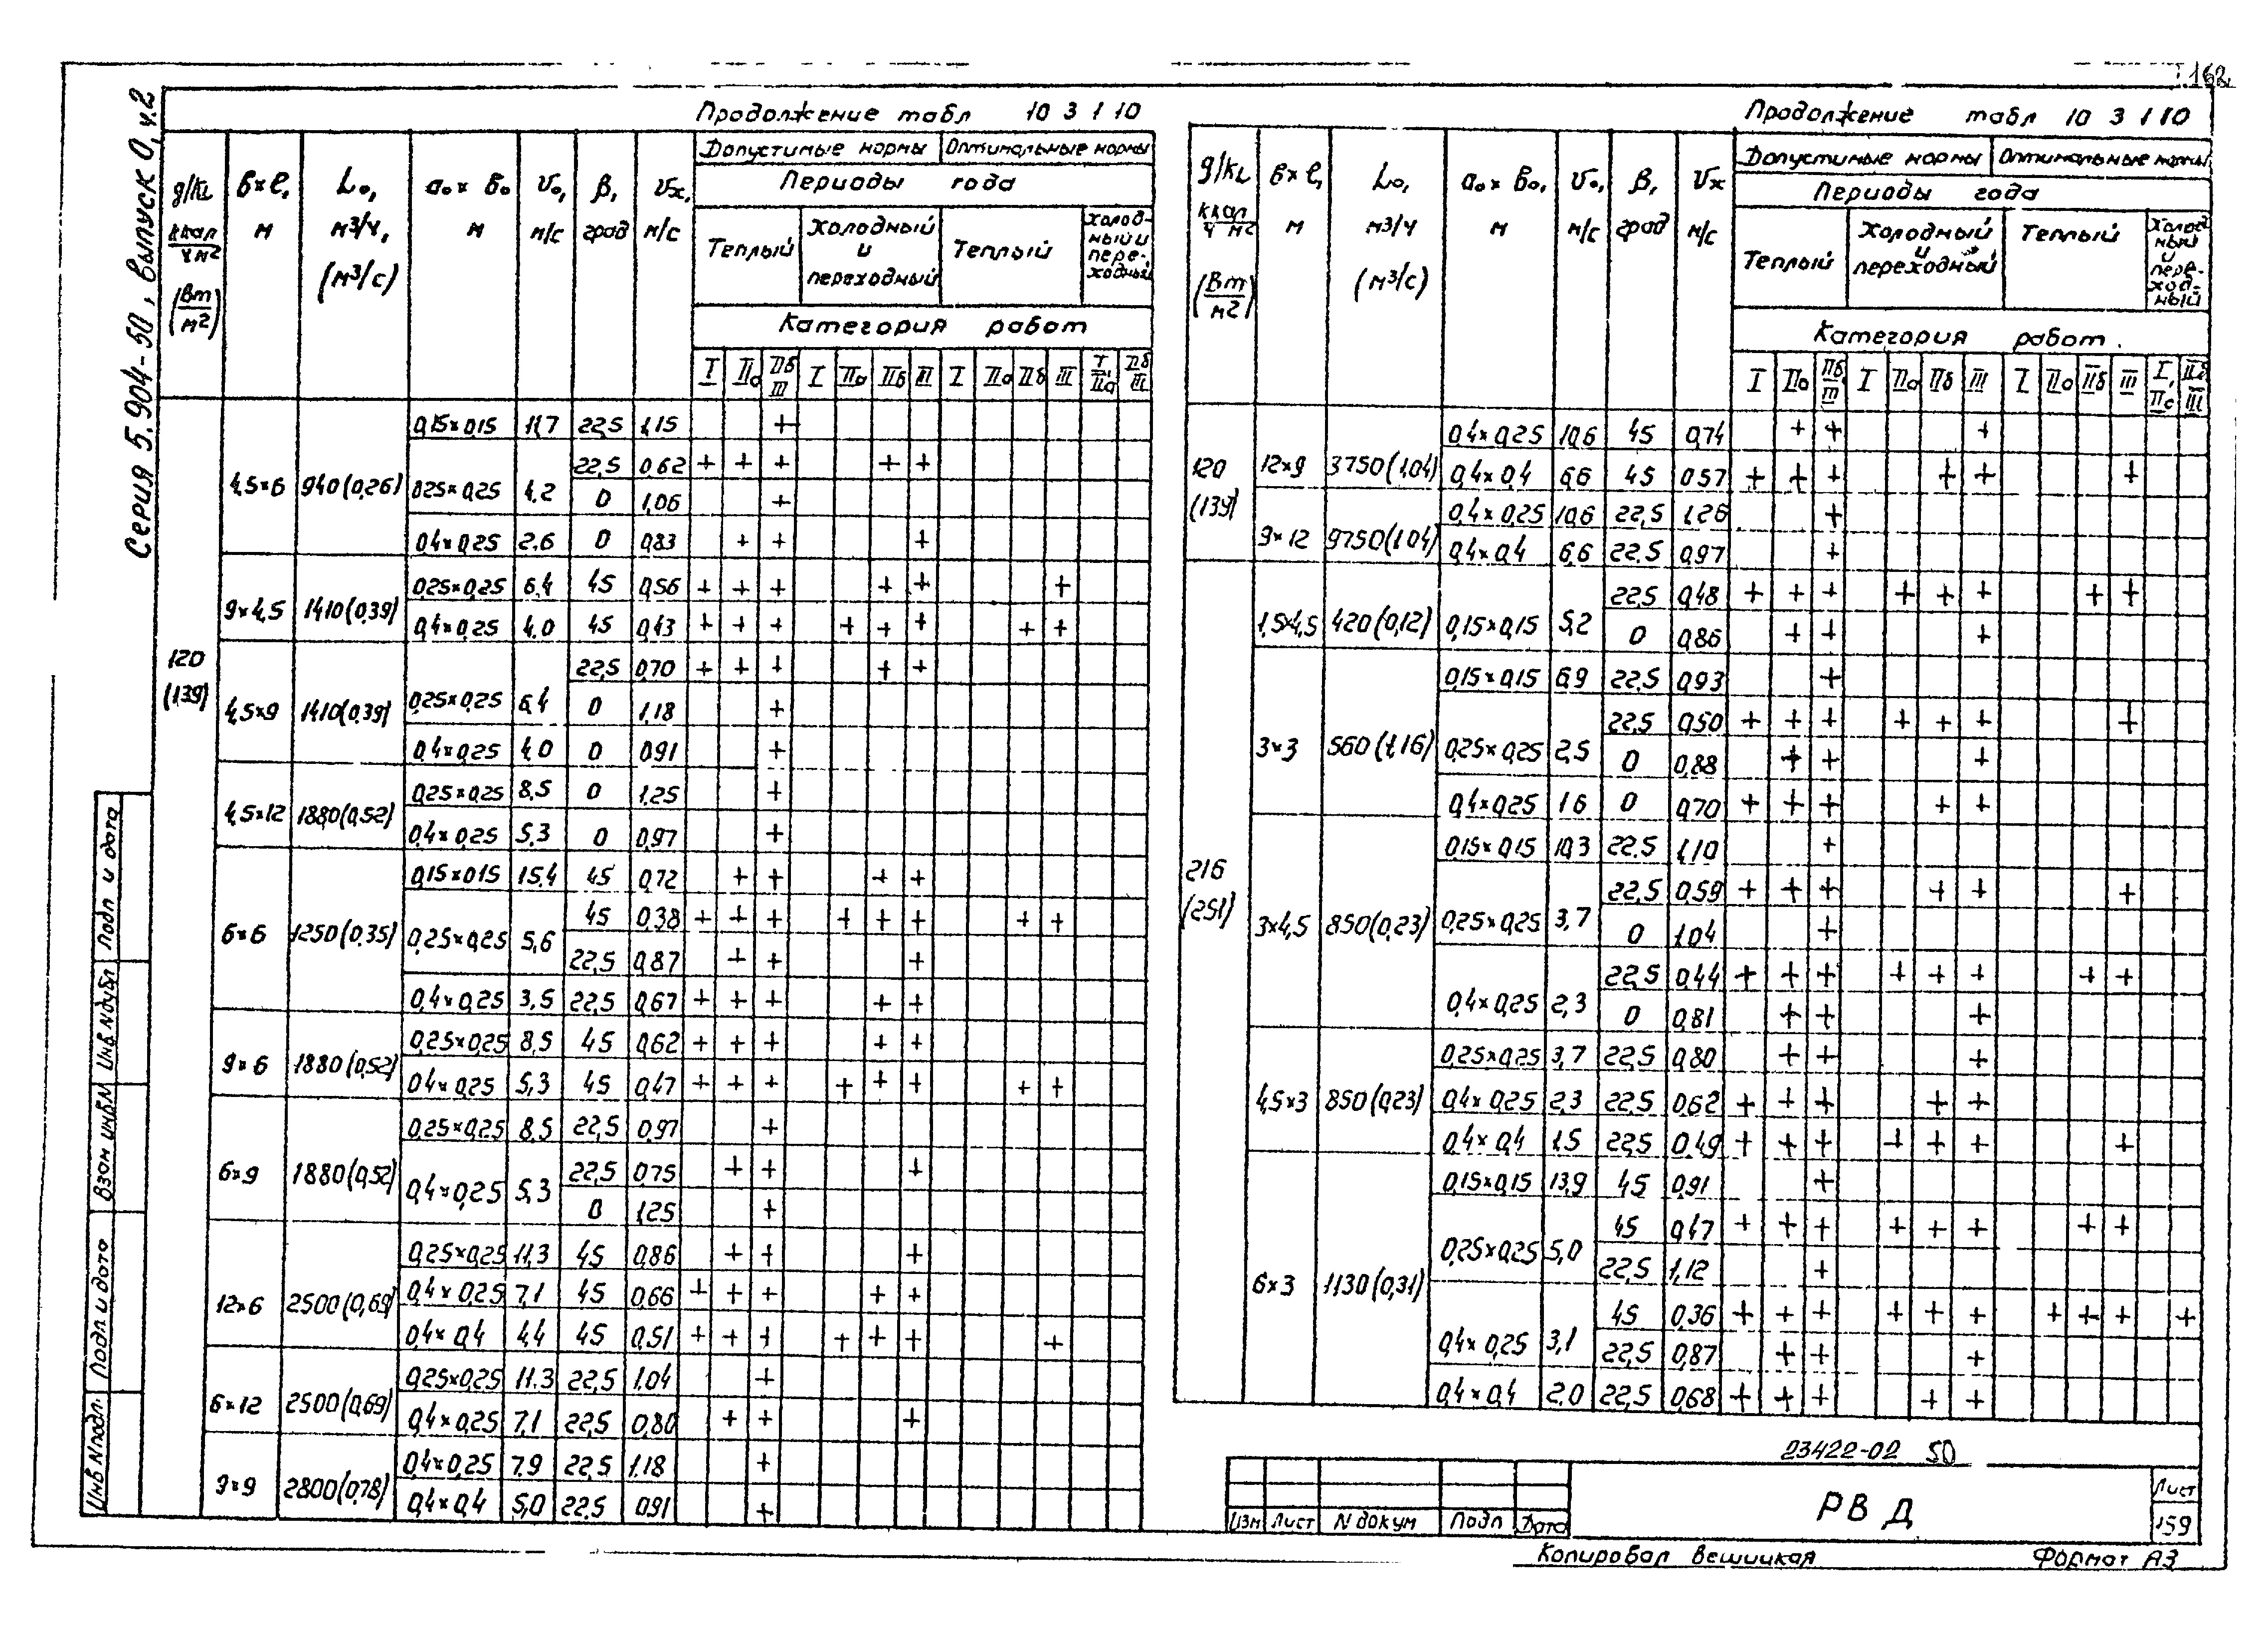 162
Серия 5.904-50, выпуск 0, ч.2
Продолжение табл 10 3 1 10
g/кL ккал/ч м² (Вт/м²) | в×ℓ, м | L₀, м³/ч, (м³/с) | а₀×в₀ м | υ₀, м/с | β, град | υх, м/с | Допустимые нормы | Оптимальные нормы
Периоды года
Теплый | Холодный и переходный | Теплый | Холод-ный и пере-ходный
Категория работ
I | IIа | IIб III | I | IIа | IIб | III | I | IIа | IIб | III | I, IIа | IIб III
120 (139)
4,5×6 940(0,26) 0,15×0,15 11,7 22,5 1,15 +
0,25×0,25 4,2 22,5 0,62 + + + + +
0 1,06 +
0,4×0,25 2.6 0 0,83 + + +
9×4,5 1410(0,39) 0,25×0,25 6,4 45 0,56 + + + + + +
0,4×0,25 4,0 45 0,43 + + + + + + + +
4,5×9 1410(0,39) 0,25×0,25 6,4 22,5 0,70 + + + + +
0 1,18 +
0,4×0,25 4,0 0 0,91 +
4,5×12 1880(0,52) 0,25×0,25 8,5 0 1,25 +
0,4×0,25 5,3 0 0,97 +
6×6 1250(0,35) 0,15×0,15 15,4 45 0,72 + + + +
0,25×0,25 5,6 45 0,38 + + + + + + + +
22,5 0,87 + + +
0,4×0,25 3,5 22,5 0,67 + + + + +
9×6 1880(0,52) 0,25×0,25 8,5 45 0,62 + + + + +
0,4×0,25 5,3 45 0,47 + + + + + + + +
6×9 1880(0,52) 0,25×0,25 8,5 22,5 0,97 +
0,4×0,25 5,3 22,5 0,75 + + +
0 1,25 +
12×6 2500(0,69) 0,25×0,25 11,3 45 0,86 + + +
0,4×0,25 7,1 45 0,66 + + + + +
0,4×0,4 4,4 45 0,51 + + + + + + +
6×12 2500(0,69) 0,25×0,25 11.3 22,5 1,04 +
0,4×0,25 7,1 22,5 0,80 + + +
9×9 2800(0,78) 0,4×0,25 7.9 22,5 1,18 +
0,4×0,4 5,0 22.5 0,91 +
Продолжение табл 10 3 1 10
g/кL ккал/ч м² (Вт/м²) | в×ℓ, м | L₀, м³/ч (м³/с) | а₀×в₀, м | υ₀, м/с | β, град | υх м/с | Допустимые нормы | Оптимальные нормы
Периоды года
Теплый | Холодный и переходный | Теплый | Холод ный и пере-ход-ный
Категория работ.
I | IIа | IIб III | I | IIа | IIб | III | I | IIа | IIб | III | I, IIа | IIб III
120 (139)
12×9 3750(1,04) 0,4×0,25 10,6 45 0,74 + + +
0,4×0,4 6,6 45 0,57 + + + + + +
9×12 9750(1,04) 0,4×0,25 10,6 22,5 1,26 +
0,4×0,4 6,6 22,5 0,97 +
216 (251)
1,5×4,5 420(0,12) 0,15×0,15 5,2 22,5 0,48 + + + + + + + +
0 0,86 + + +
3×3 560(1,16) 0,15×0,15 6,9 22,5 0,93 +
0,25×0,25 2,5 22,5 0,50 + + + + + + +
0 0,88 + + +
0,4×0,25 1.6 0 0,70 + + + + +
3×4,5 850(0,23) 0,15×0,15 10,3 22.5 1,10 +
0,25×0,25 3,7 22,5 0,59 + + + + + +
0 1,04 +
0,4×0,25 2,3 22,5 0,44 + + + + + + + +
0 0,81 + + +
4,5×3 850(0,23) 0,25×0,25 3,7 22,5 0,80 + + +
0,4×0,25 2.3 22,5 0,62 + + + + +
0,4×0,4 1,5 22,5 0,49 + + + + + + +
6×3 1130(0,31) 0,15×0,15 13,9 45 0,91 +
0,25×0,25 5,0 45 0,47 + + + + + + + +
22,5 1,12 +
0,4×0,25 3,1 45 0,36 + + + + + + + + + +
22,5 0,87 + + +
0,4×0,4 2.0 22,5 0,68 + + + + +
23422-02 50
Изм Лист N докум Подп Дата
РВ Д
Лист
159
Копировал Вешицкая Формат А3
Инв N подл. Подп и дата Взам инв N Инв N дубл Подп и дата